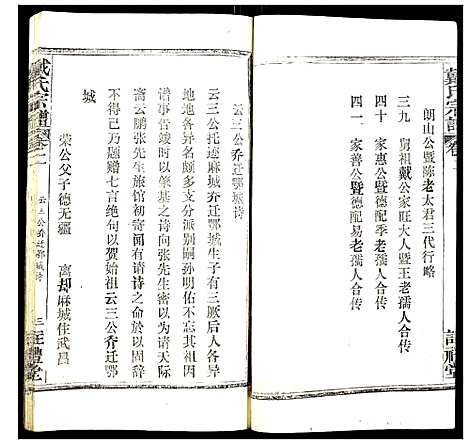 戴氏宗譜
朗山公暨陈老太君三代行略
三九 舅祖戴公家旺大人暨王老孺人合传
四十 家惠公暨德配季老孺人合传
四一 家善公暨德配易老孺人合传
註禮堂
云三公乔迁鄂城诗
云三公托迹麻城乔迁鄂城生子有三厥后人各
地地各异名颇多支分派别嗣孙明佑不忘其祖因
谱事告竣时以肇基之诗向张先生密以为请斯天
高云鹏张先生旅馆初寄闻有请诗之命於以固辞
不得已乃题赠七言绝句以贺始祖云三公乔迁鄂
城
荣公父子德无疆 离却麻城住武昌
戴氏宗譜
卷二
云三公乔迁鄂城诗
三
註禮堂